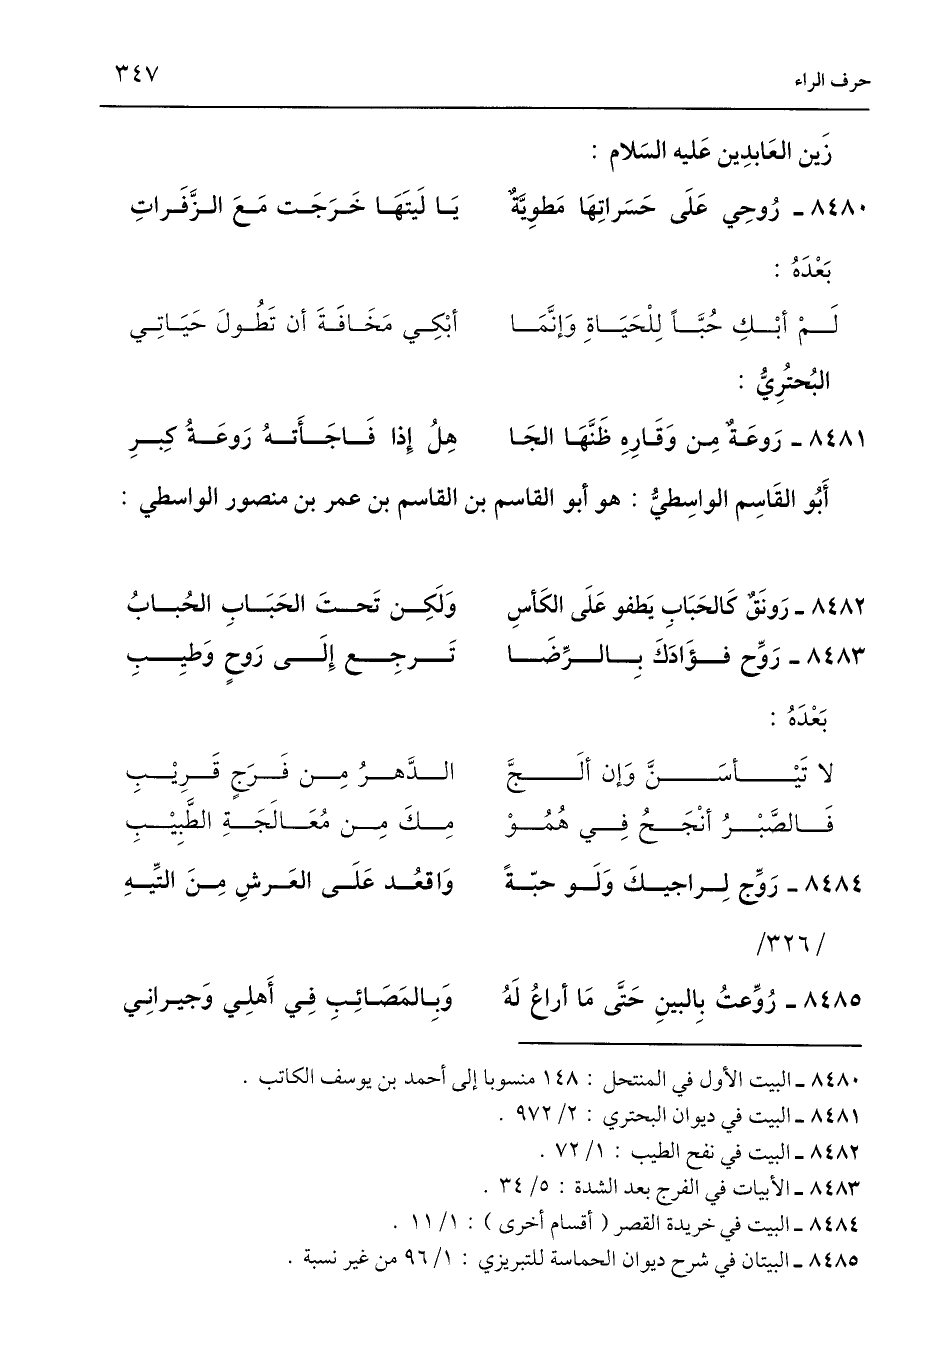 حرف الراء ٣٤٧
زَين العَابدِين عَليه السَلام :
٨٤٨٠ ـ رُوحِي عَلَى حَسَراتِهَا مَطوِيَّةٌ يَا لَيتَهَا خَرَجَت مَعَ الزَّفَراتِ
بَعْدَهُ :
لَمْ أبْكِ حُبَّاً لِلْحَيَاةِ وَإنَّمَا أبْكِي مَخَافَةَ أن تَطُولَ حَيَاتِي
البُحتُرِيُّ :
٨٤٨١ ـ رَوعَةٌ مِن وَقَارِهِ ظَنَّهَا الجَا هِلُ إذا فَاجَأَتهُ رَوعَةُ كِبرِ
أَبُو القَاسِم الواسِطيُّ : هو أبو القاسم بن القاسم بن عمر بن منصور الواسطي :
٨٤٨٢ ـ رَونَقٌ كَالحَبَابِ يَطفو عَلَى الكَأسِ وَلَكِن تَحتَ الحَبَابِ الحُبابُ
٨٤٨٣ ـ رَوِّح فؤادَكَ بِالرِّضَا تَرجِع إلَى رَوحٍ وَطِيبِ
بَعْدَهُ :
لا تَيْأسَنَّ وَإن ألَجَّ الدَّهرُ مِن فَرَجٍ قَرِيْبِ
فَالصَّبْرُ أنْجَحُ فِي هُمُوْ مِكَ مِن مُعَالَجَةِ الطَّبِيْبِ
٨٤٨٤ ـ رَوِّج لِراجيكَ وَلَو حبّةً وَاقعُد عَلَى العَرشِ مِنَ التِّيهِ
/٣٢٦/
٨٤٨٥ ـ رُوِّعتُ بِالبينِ حَتَّى مَا أراعُ لَهُ وَبِالمَصَائِبِ فِي أَهلِي وَجيرانِي
٨٤٨٠ ـ البيت الأول في المنتحل : ١٤٨ منسوبا إلى أحمد بن يوسف الكاتب .
٨٤٨١ ـ البيت في ديوان البحتري : ٢/ ٩٧٢ .
٨٤٨٢ ـ البيت في نفح الطيب : ١/ ٧٢ .
٨٤٨٣ ـ الأبيات في الفرج بعد الشدة : ٥/ ٣٤ .
٨٤٨٤ ـ البيت في خريدة القصر ( أقسام أخرى ) : ١/ ١١ .
٨٤٨٥ ـ البيتان في شرح ديوان الحماسة للتبريزي : ١/ ٩٦ من غير نسبة .